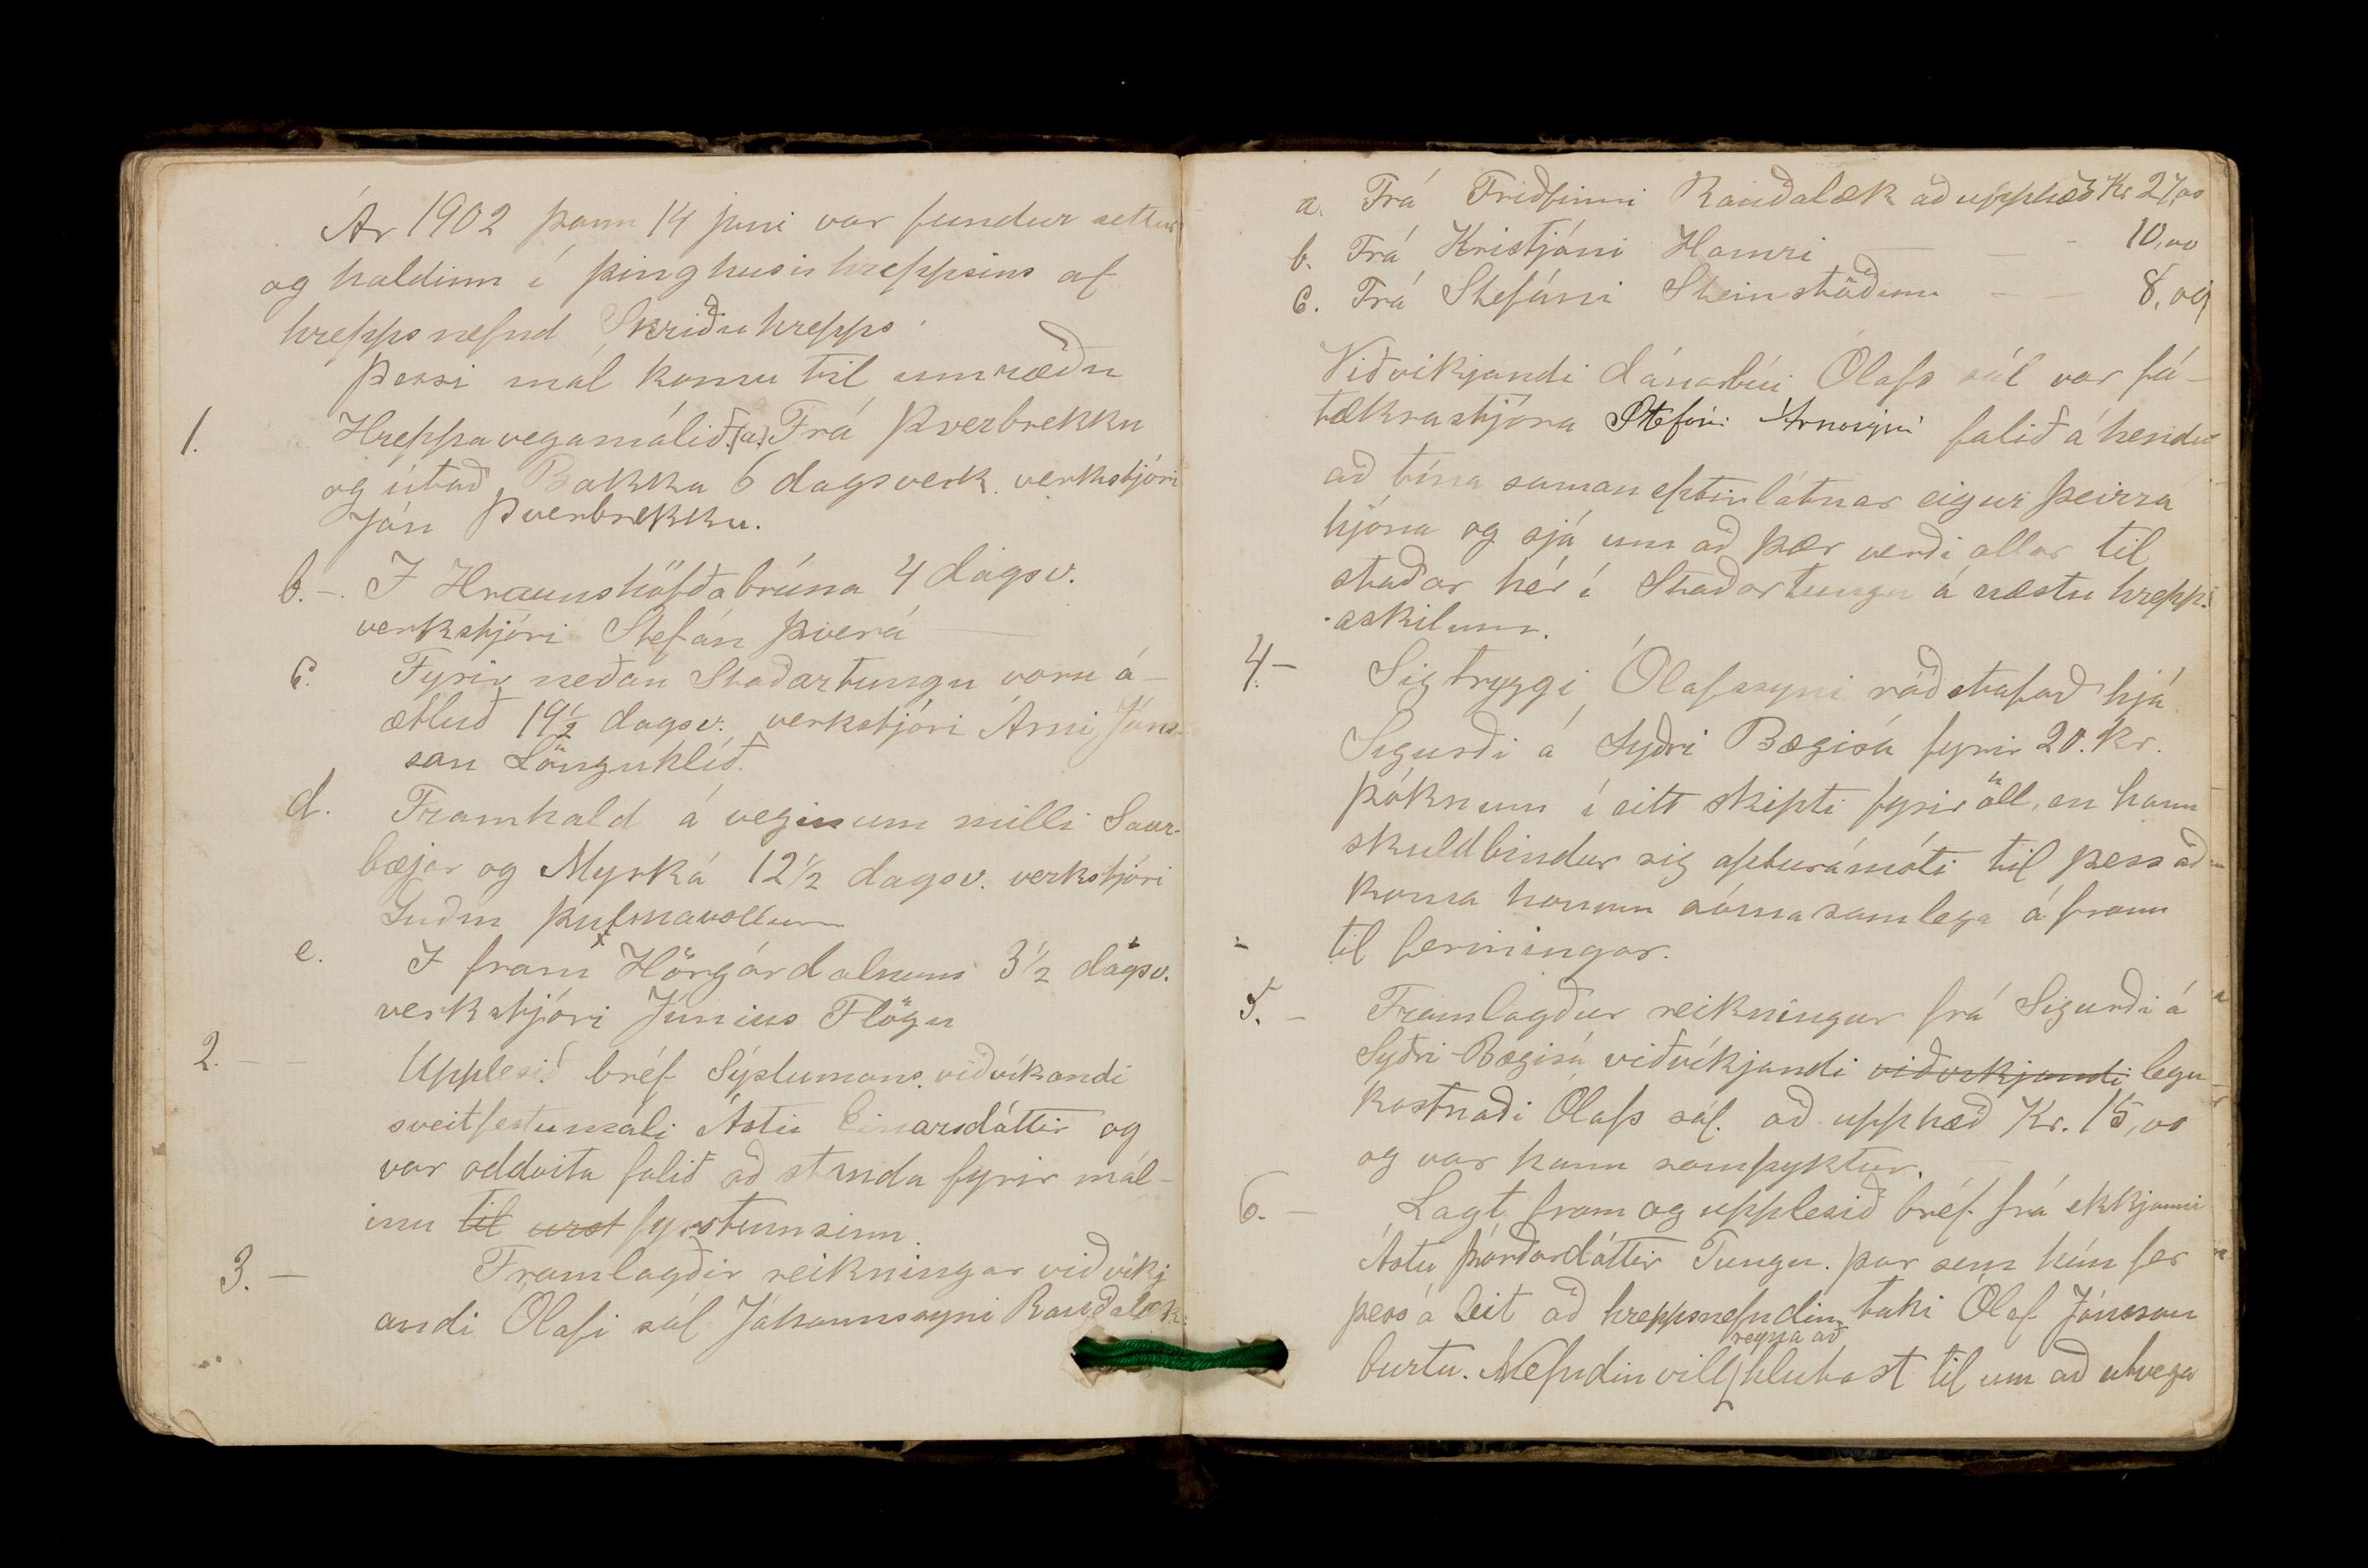 Ár 1902 þann 14 juni var fundur settur
og haldinn í þinghusi hreppsins af
hreppsnefnd Skriðuhrepps.
Þessi mál komu til umræðu
1. Hreppavegamálið. (a). Frá Þverbrekku
og útað Bakka 6 dagsverk. verkstjóri
Jón Þverbrekku.
b. - I Hraunshöfðabrúna 4 dagsv.
verkstjóri Stefán Þverá
c. Fyrir neðan Staðartungu voru á-
ætluð 19 1/2 dagsv. verkstjóri Árni Jóns-
son Lönguhlíð.
d. Framhald á veginum milli Saur-
bæjar og Myrká 12 1/2 dagsv. verkstjóri
Guðm Þufnavöllum
e. I fram Hörgárdalnum 3 1/2 dagsv.
verkstjóri Júníus Flögu
2. - Upplesið bréf Sýslumans. viðvíkandi
sveitfestumáli Ástu Einarsdóttir og
var oddvita falið að standa fyrir mál-
inu til urst fyrstumsinn.
3. - Framlagðir reikningar viðvíkj
andi Ólafi sál Jóhannssyni Rauðalæk.
a. Frá Friðfinni Rauðalæk að upphæð Kr 27,00
b. Frá Kristjáni Hamri - - 10,00
c. Frá Stefáni Steinstöðum - - 8,00
Viðvikjandi dánarbúi Ólafs sál var fá-
tækrastjóra Stefáni Arnasyni falið á hendur
að tína saman eptirlátnar eigur þeirra
hjóna og sjá um að þær verði allar til
staðar hér í Staðartungu á næstu hrepp-
askilum.
4. - Sigtryggi Ólafssyni ráðstafað hjá
Sigurði á Syðri Bægisá fyrir 20. kr.
þóknun í eitt skipti fyrir öll, en hann
skuldbindur sig apturámóti til þess að
koma honum sómasamlega á fram
til fermingar.
5. - Framlagður reikningur frá Sigurði á
Syðri-Bægisá viðvíkjandi viðvikjandi legu-
kostnaði Ólafs sál. að upphæð Kr. 15,00
og var hann samþyktur.
6. - Lagt fram og upplesið bréf frá ekkjunni
Ástu Þórðardóttir Tungu. þar sem hún fer
þess á leit að hreppsnefndin taki Ólaf Jónsson
burtu. Nefndin vill reyna að hlutast til um að utvega